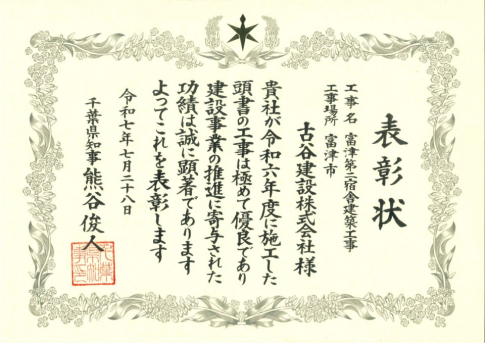 表彰状
工事名 富津第二宿舎建築工事
工事場所 富津市
古谷建設株式会社 様
貴社が令和六年度に施工した
頭書の工事は極めて優良であり
建設事業の推進に寄与された
功績は誠に顕著であります
よってこれを表彰します
令和七年七月二十八日
千葉県知事 熊谷俊人